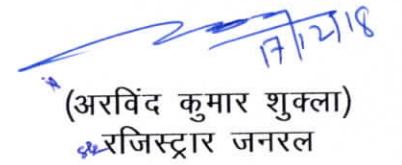 17/12/18
(अरविंद कुमार शुक्ला)
रजिस्ट्रार जनरल